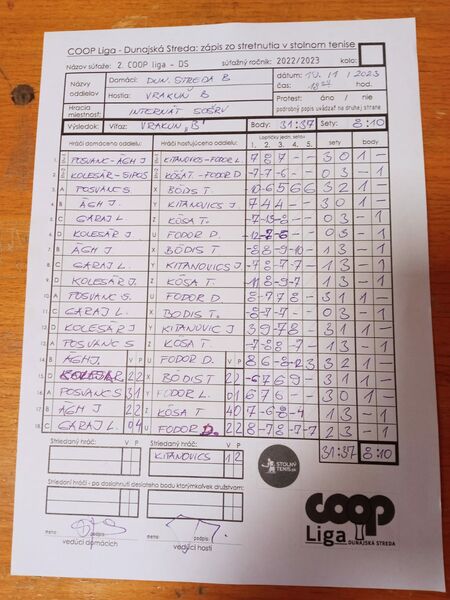 COOP Liga - Dunajská Streda: zápis zo stretnutia v stolnom tenise
Názov súťaže: 2. COOP liga - DS súťažný ročník: 2022/2023 kolo:
Názvy oddielov Domáci: DUN. STREDA B dátum: 10. 11. /2023
Hostia: VRAKUŇ B čas:
Hracia miestnosť: INTERNÁT SOŠRV Protest: áno / nie
podrobný popis uvádzať na druhej strane
Výsledok: Víťaz: VRAKUN "B" Body: 31:37 Sety: 8:10
Hráči domáceho oddielu Hráči hosťujúceho oddielu Loptičky jedn. setov sety body
1. 2. 3. 4. 5.
1. POSVANC-ÁGH J KITANOVICS-FODOR L. 7 8 7 - - 3 0 1 -
2. KOLESÁR-SIPOS KÓSA T.-FODOR D -7 -7 -6 - - 0 3 - 1
3. A POSVANC S X BÖDIS T. -10 -6 5 6 6 3 2 1 -
4. B ÁGH J. Y KITANOVICS J 7 4 4 - - 3 0 1 -
5. C GARAJ L Z KÓSA T. -7 -13 -8 - - 0 3 - 1
6. D KOLESÁR J U FODOR D. -12 -7 -6 - - 0 3 - 1
7. B ÁGH J X BÖDIS T -8 8 -9 -10 - 1 3 - 1
8. C GARAJ L. Y KITANOVICS J -7 8 -7 -7 - 1 3 - 1
9. D KOLESÁR J. Z KÓSA T. -11 8 -9 -7 - 1 3 - 1
10. A POSVANC S. U FODOR D 8 -7 7 8 - 3 1 1 -
11. C GARAJ L. X BODIS T. -8 -7 8 -7 - 1 3 - 1
12. D KOLESÁR J Y KITANOVIC J 3 9 -7 8 - 3 1 1 -
13. A POSVANC S Z KÓSA T. -7 8 -8 -7 - 1 3 - 1
14. B ÁGH J. V P U FODOR D. V P 8 6 -8 -2 3 3 2 1 -
15. D KOLESÁR 2 2 X BÖDIS T 2 2 -6 7 6 9 - 3 1 1 -
16. A POSVANC S 3 1 Y FODOR L. 0 1 -7 -6 -9 - - 0 3 - 1
17. B ÁGH J 2 2 Z KÓSA T 4 0 7 -6 -8 -4 - 1 3 - 1
18. C GARAJ L 0 4 U FODOR D. 2 2 8 -7 8 -7 -7 2 3 - 1
Striedaný hráč: V P Striedaný hráč: V P 31:37 8:10
KITANOVICS 1 2
STOLNÝ TENIS.SK
Striedaní hráči - po dosiahnutí desiateho bodu ktorýmkoľvek družstvom:
COOP
Liga DUNAJSKÁ STREDA
meno: podpis: meno: podpis:
vedúci domácich vedúci hostí